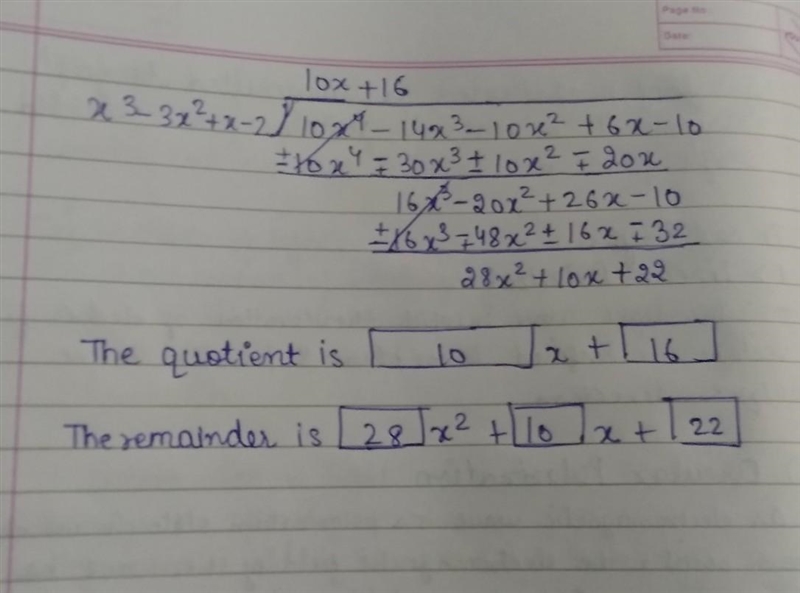 Page No.
Date:
10x + 16
x³ - 3x² + x - 2 ) 10x⁴ - 14x³ - 10x² + 6x - 10
± 10x⁴ ∓ 30x³ ± 10x² ∓ 20x
16x³ - 20x² + 26x - 10
± 16x³ ∓ 48x² ± 16x ∓ 32
28x² + 10x + 22
The quotient is 10 x + 16
The remainder is 28 x² + 10 x + 22